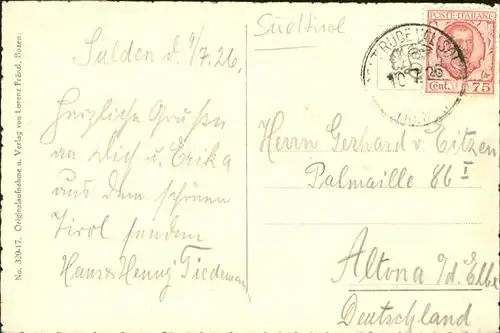 Südtirol
POSTE ITALIANE
Cent. 75
10 7 26
Sulden d. 9/7.26.
Herzliche Grüße
an Dich u. Erika
aus dem schönen
Tirol senden
Hans & Henny Tiedemann
Herrn Gerhard v. Eitzen
Palmaille 86 I
Altona a/d. Elbe
Deutschland
No. 320-17. Originalaufnahme u. Verlag von Lorenz Fränzl, Bozen.